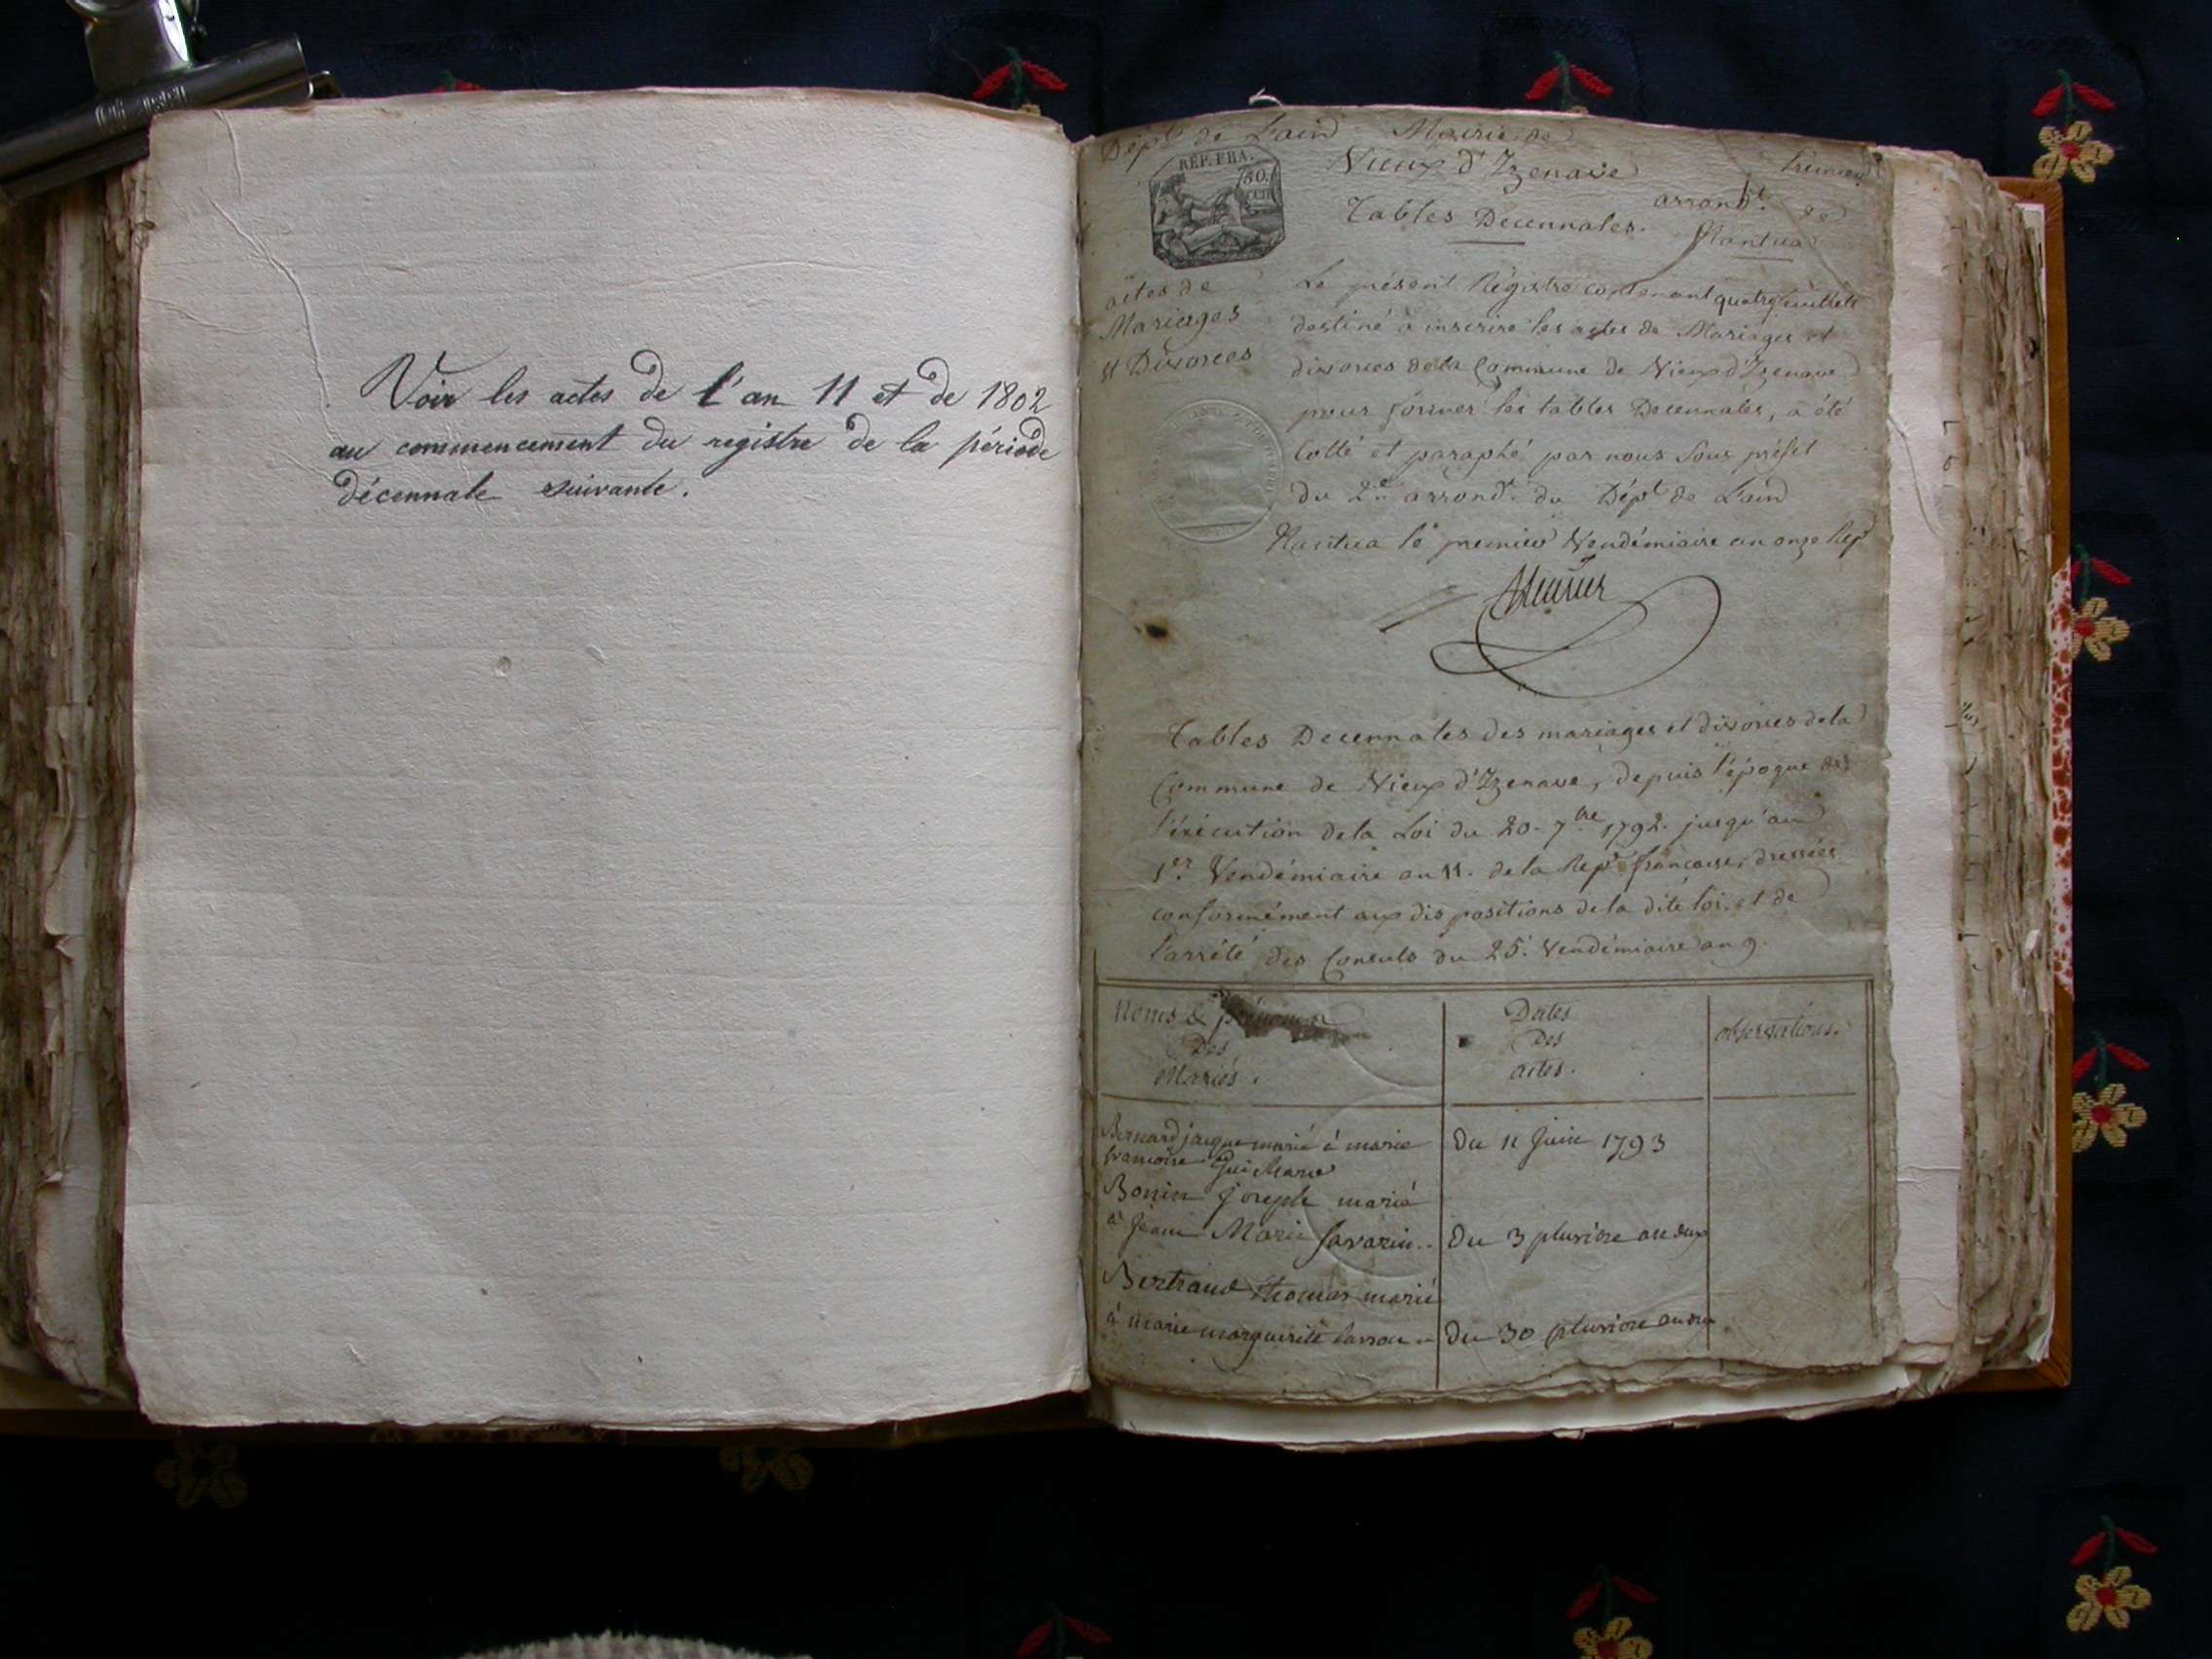 Voir les actes de l'an 11 et de 1802
au commencement du registre de la période
décennale suivante.
Dépt de L'ain Mairie de
Vieux d'Izenave
Premier
arrondt. de
Nantua
Tables Decennales.
RÉP. FRA.
50.
CEN
actes de
Mariages
et Divorces
Le présent Régistre contenant quatre feuillets
destiné à inscrire les actes de Mariages et
divorces de la Commune de Vieux d'Izenave
pour former les tables Decennales, a été
Cotté et paraphé par nous Sous préfet
du 2e. arrondt. du Dépt de L'ain
Nantua le premier Vendémiaire an onze Rep
Tables Decennales des mariages et divorces de la
Commune de Vieux d'Izenave, depuis l'époque de
l'exécution de la Loi du 20. 7bre 1792. jusqu'au
1er. Vendémiaire an 11. de la Repe. française, dressées
conformément aux dispositions de la dite loi, et de
l'arrêté des Consuls du 25. Vendémiaire an 9.
Noms & prénoms
Des
Mariés.
Dates
Des
actes.
observations.
Bernard jacque marié à marie
francoise
Du 11 Juin 1793
Bonin joseph marié
à Jeanne Marie Savarin..
Du 3 pluviose an deux
Bertrand thomas marié
à marie marguerite
Du 30 pluviose an